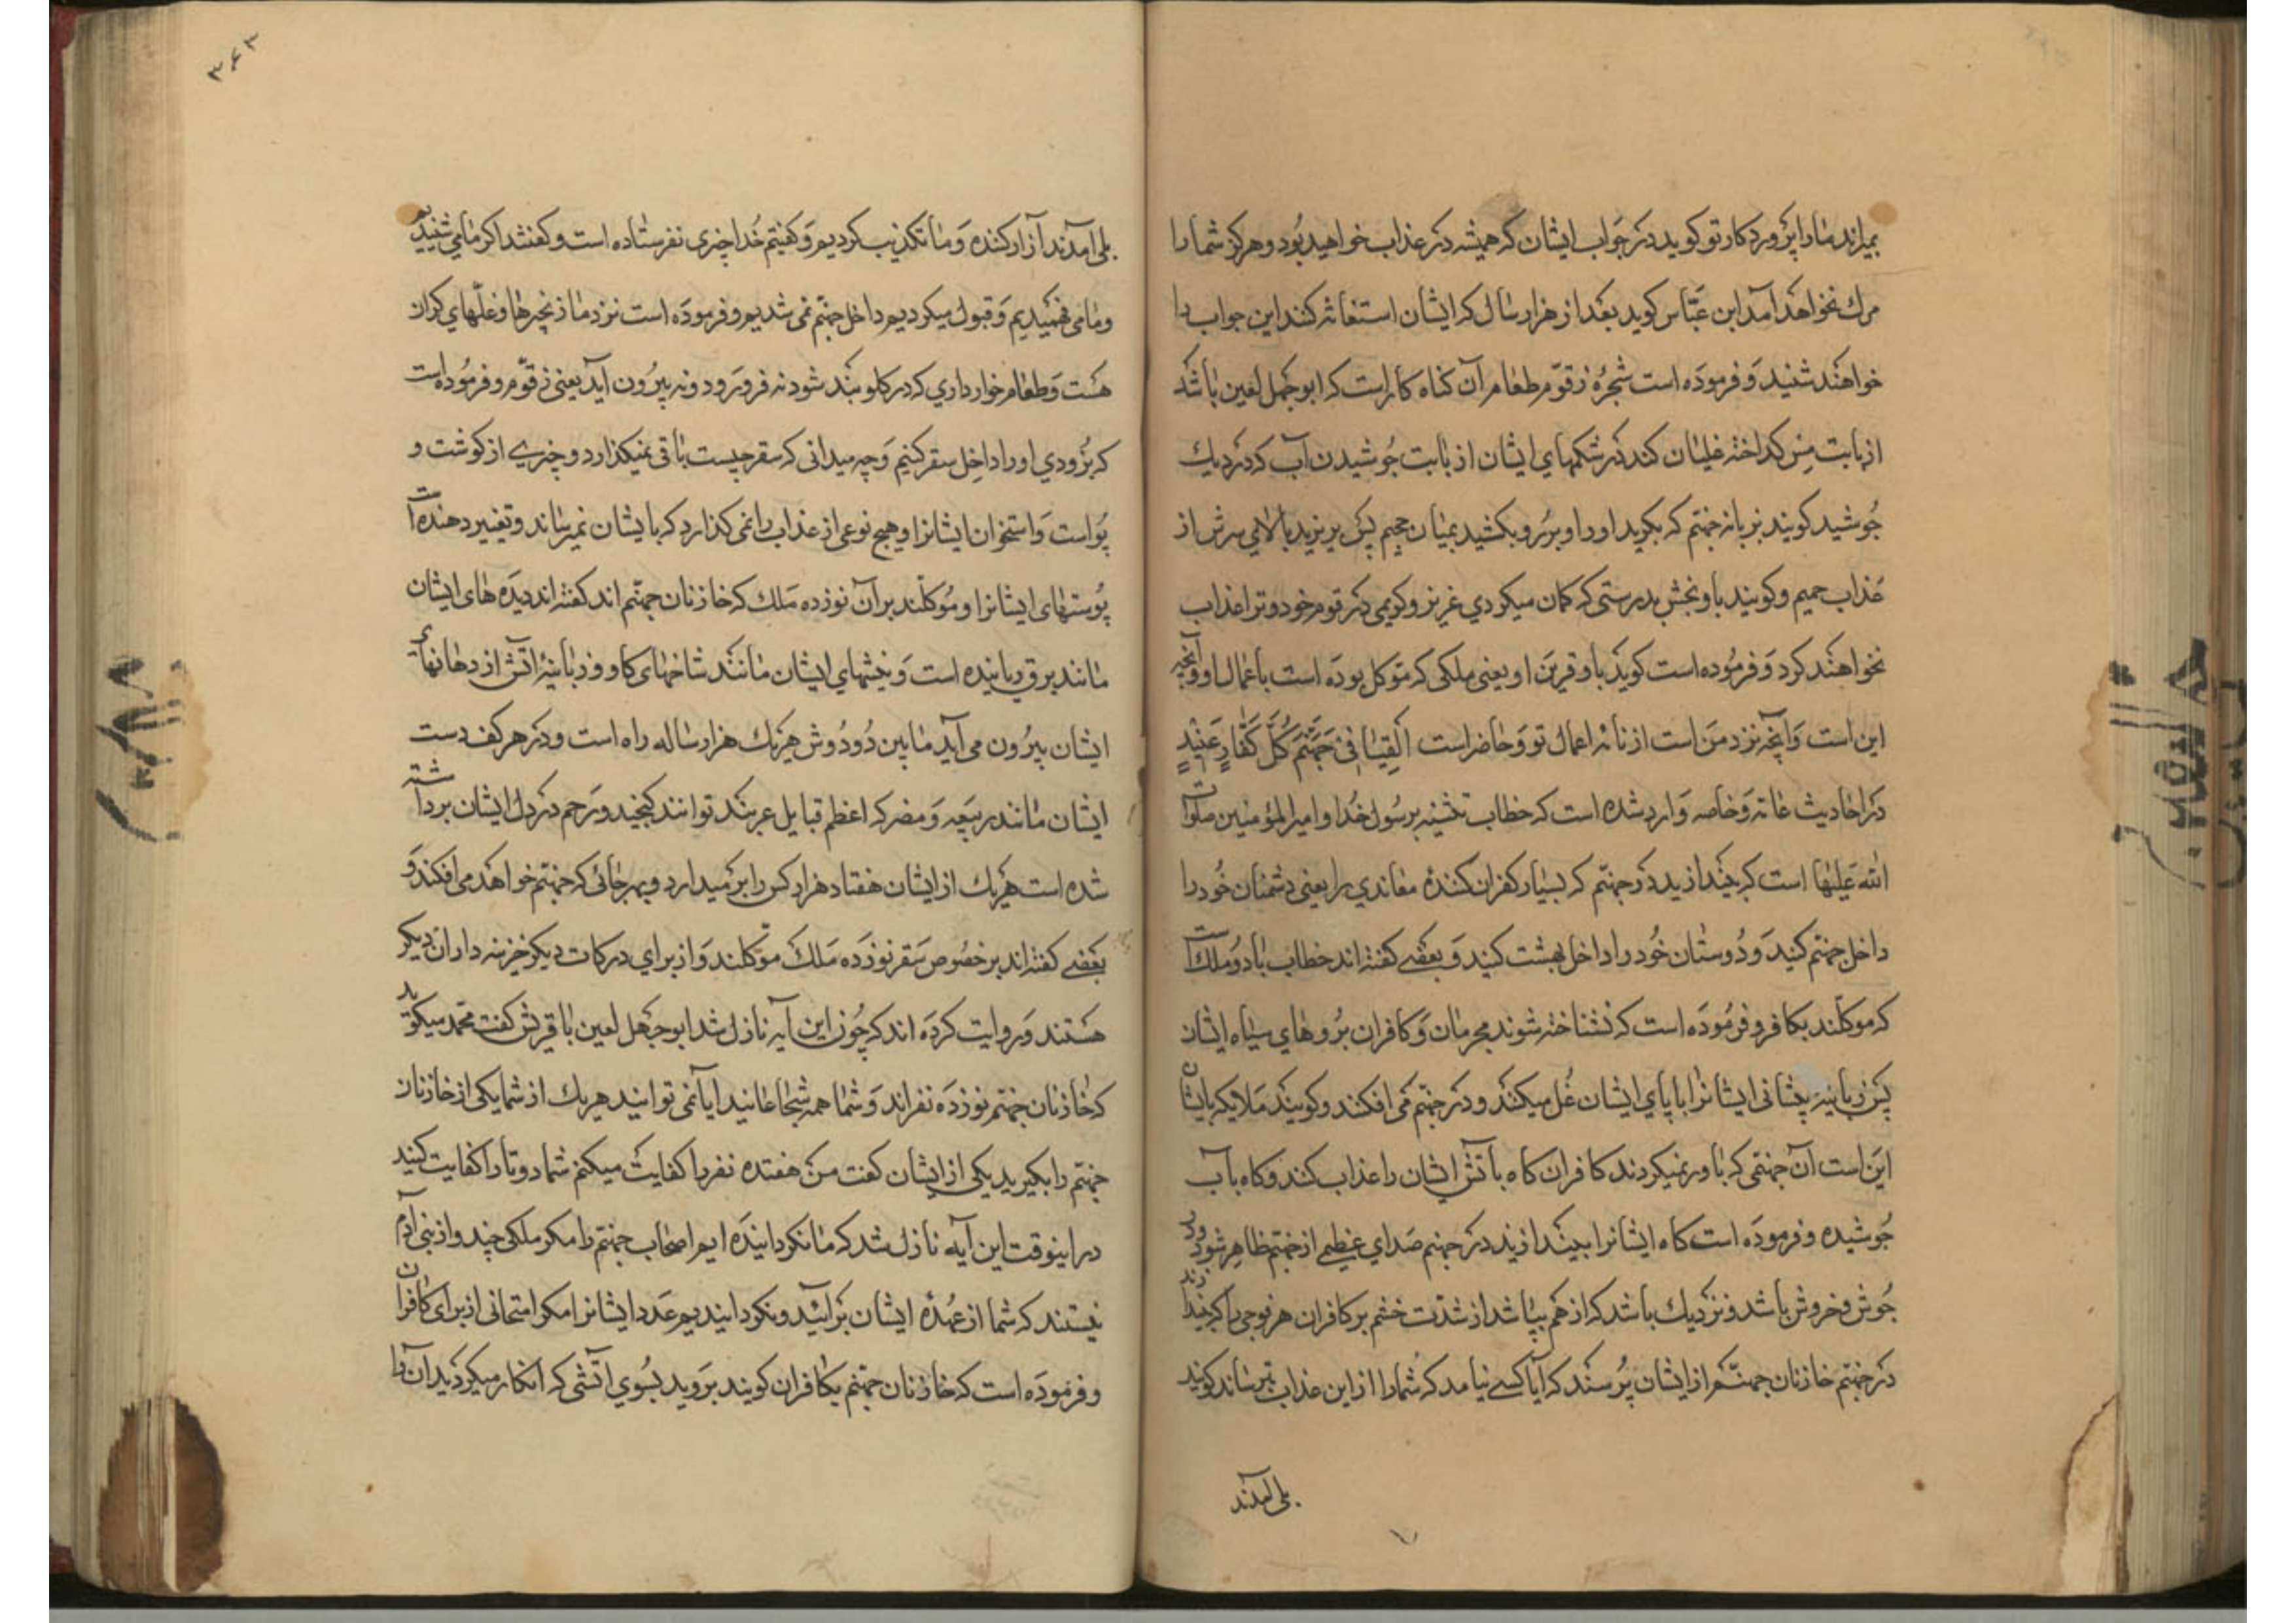 بمیراند ما را پروردکار تو کوید در جواب ایشان که همیشه در عذاب خواهید بود و هرکز شما را
مرك نخواهد آمد ابن عبّاس کوید بعد از هزار سال که ایشان استغاثه کنند این جواب را
خواهند شنید و فرموده است شجرهٔ زقوّم طعام آن کناه کار است که ابو جهل لعین باشد
از بابت مس کداخته غلیان کند در شکمهای ایشان از بابت جوشیدن آب که در دیك
جوشید کویند بزبانه جهنّم که بکیرید او را و برو بکشید بمیان جحیم پس بریزید بالای سرش از
عذاب حمیم و کویند باو بچش بدرستی که کمان میکردی عزیز و کریمی در قوم خود و ترا عذاب
نخواهند کرد و فرموده است کوید باو قرین او یعنی ملکی که موکل بوده است باعمال او و آنچه
این است و آنچه نزد من است از نامه اعمال تو و حاضر است اَلْقِیٰا فی جَهَنَّمَ کُلَّ کَفّٰارٍ عَنیدٍ
در احادیث عامّه و خاصه وارد شده است که خطاب تثنیه برسول خُدا و امیر المؤمنین صلوات
الله علیهما است که بیندازید در جهنّم که بسیار کفران کنندهٔ معاندی را یعنی دشمنان خود را
داخل جهنّم کنید و دوستان خود را داخل بهشت کنید و بعضی کفته اند خطاب با دو ملك است
که موکلند بکافر و فرموده است که شناخته شوند مجرمان و کافران بروهای سیاه ایشان
پس زبانیه پیشانی ایشانرا با پای ایشان غُل میکنند و در جهنّم می افکند و کویند ملایکه بایشان
این است آن جهنّمی که باور نمیکردند کافران کاه باتش ایشان را عذاب کنند و کاه باب
جوشیده و فرموده است که کاه ایشانرا بیندازید در جهنم صدای عظیمی از جهنّم ظاهر شود و در
جوش و خروش باشد و نزدیك باشد که از هم بپاشد از شدّت خشم بر کافران هر فوجی را که بیندازند
در جهنّم خازنان جهنّم از ایشان پرسند که آیا کسی نیامد که شما را از این عذاب بترساند کویند
بلی آمدند
۳۶۳
بلی آمدند آزار کننده و ما تکذیب کردیم و کفتیم خدا چیزی نفرستاده است و کفتند اکر ما می شنیدیم
و ما می فهمیدیم و قبول میکردیم داخل جهنّم نمی شدیم و فرموده است نزد ما زنجیرها و غلّهای کران
هست و طعام خوار داری که در کلو بند شود نه فرو رود و نه بیرون آید یعنی زقوّم و فرموده است
که بزودی او را داخل سقر کنیم و چه میدانی که سقر چیست باقی نمیکذارد و چیزی از کوشت و
پوست و استخوان ایشانرا و هیچ نوعی از عذاب را نمی کذارد که بایشان نمیرساند و تغییر دهنده است
پوستهای ایشانرا و موکلند بر آن نوزده ملك که خازنان جهنّم اند کفته اند دیده های ایشان
مانند برق رباینده است و نیشهای ایشان مانند شاخهای کاو و زبانیهٔ اتش از دهانهای
ایشان بیرون می آید ما بین دو دوش هر یك هزار ساله راه است و در هر کف دست
ایشان مانند ربیعه و مضر که اعظم قبایل عربند توانند کنجید و رحم در دل ایشان برداشته
شده است هر یك از ایشان هفتاد هزار کس را بر میدارد و بهر جائی که جهنّم خواهد می افکند و
بعضی کفته اند بر خصوص سقر نوزده ملك موکلند و از برای درکات دیکر خزینه داران دیکر
هستند و روایت کرده اند که چون این آیه نازل شد ابو جهل لعین با قریش کفت محمد میکوید
که خازنان جهنّم نوزده نفراند و شما همه شجاعانید ایا نمی توانید هر یك از شما یکی از خازنان
جهنّم را بکیرید یکی از ایشان کفت من هفتده نفر را کفایت میکنم شما دو تا را کفایت کنید
در اینوقت این آیه نازل شد که ما نکردانیده ایم اصحاب جهنّم را مکر ملکی چند و از بنی آدم
نیستند که شما از عهدهٔ ایشان برائید و نکردانیدیم عدد ایشانرا مکر امتحانی از برای کافران
و فرموده است که خازنان جهنّم بکافران کویند بروید بسوی اتّشی که انکار میکردید آن را